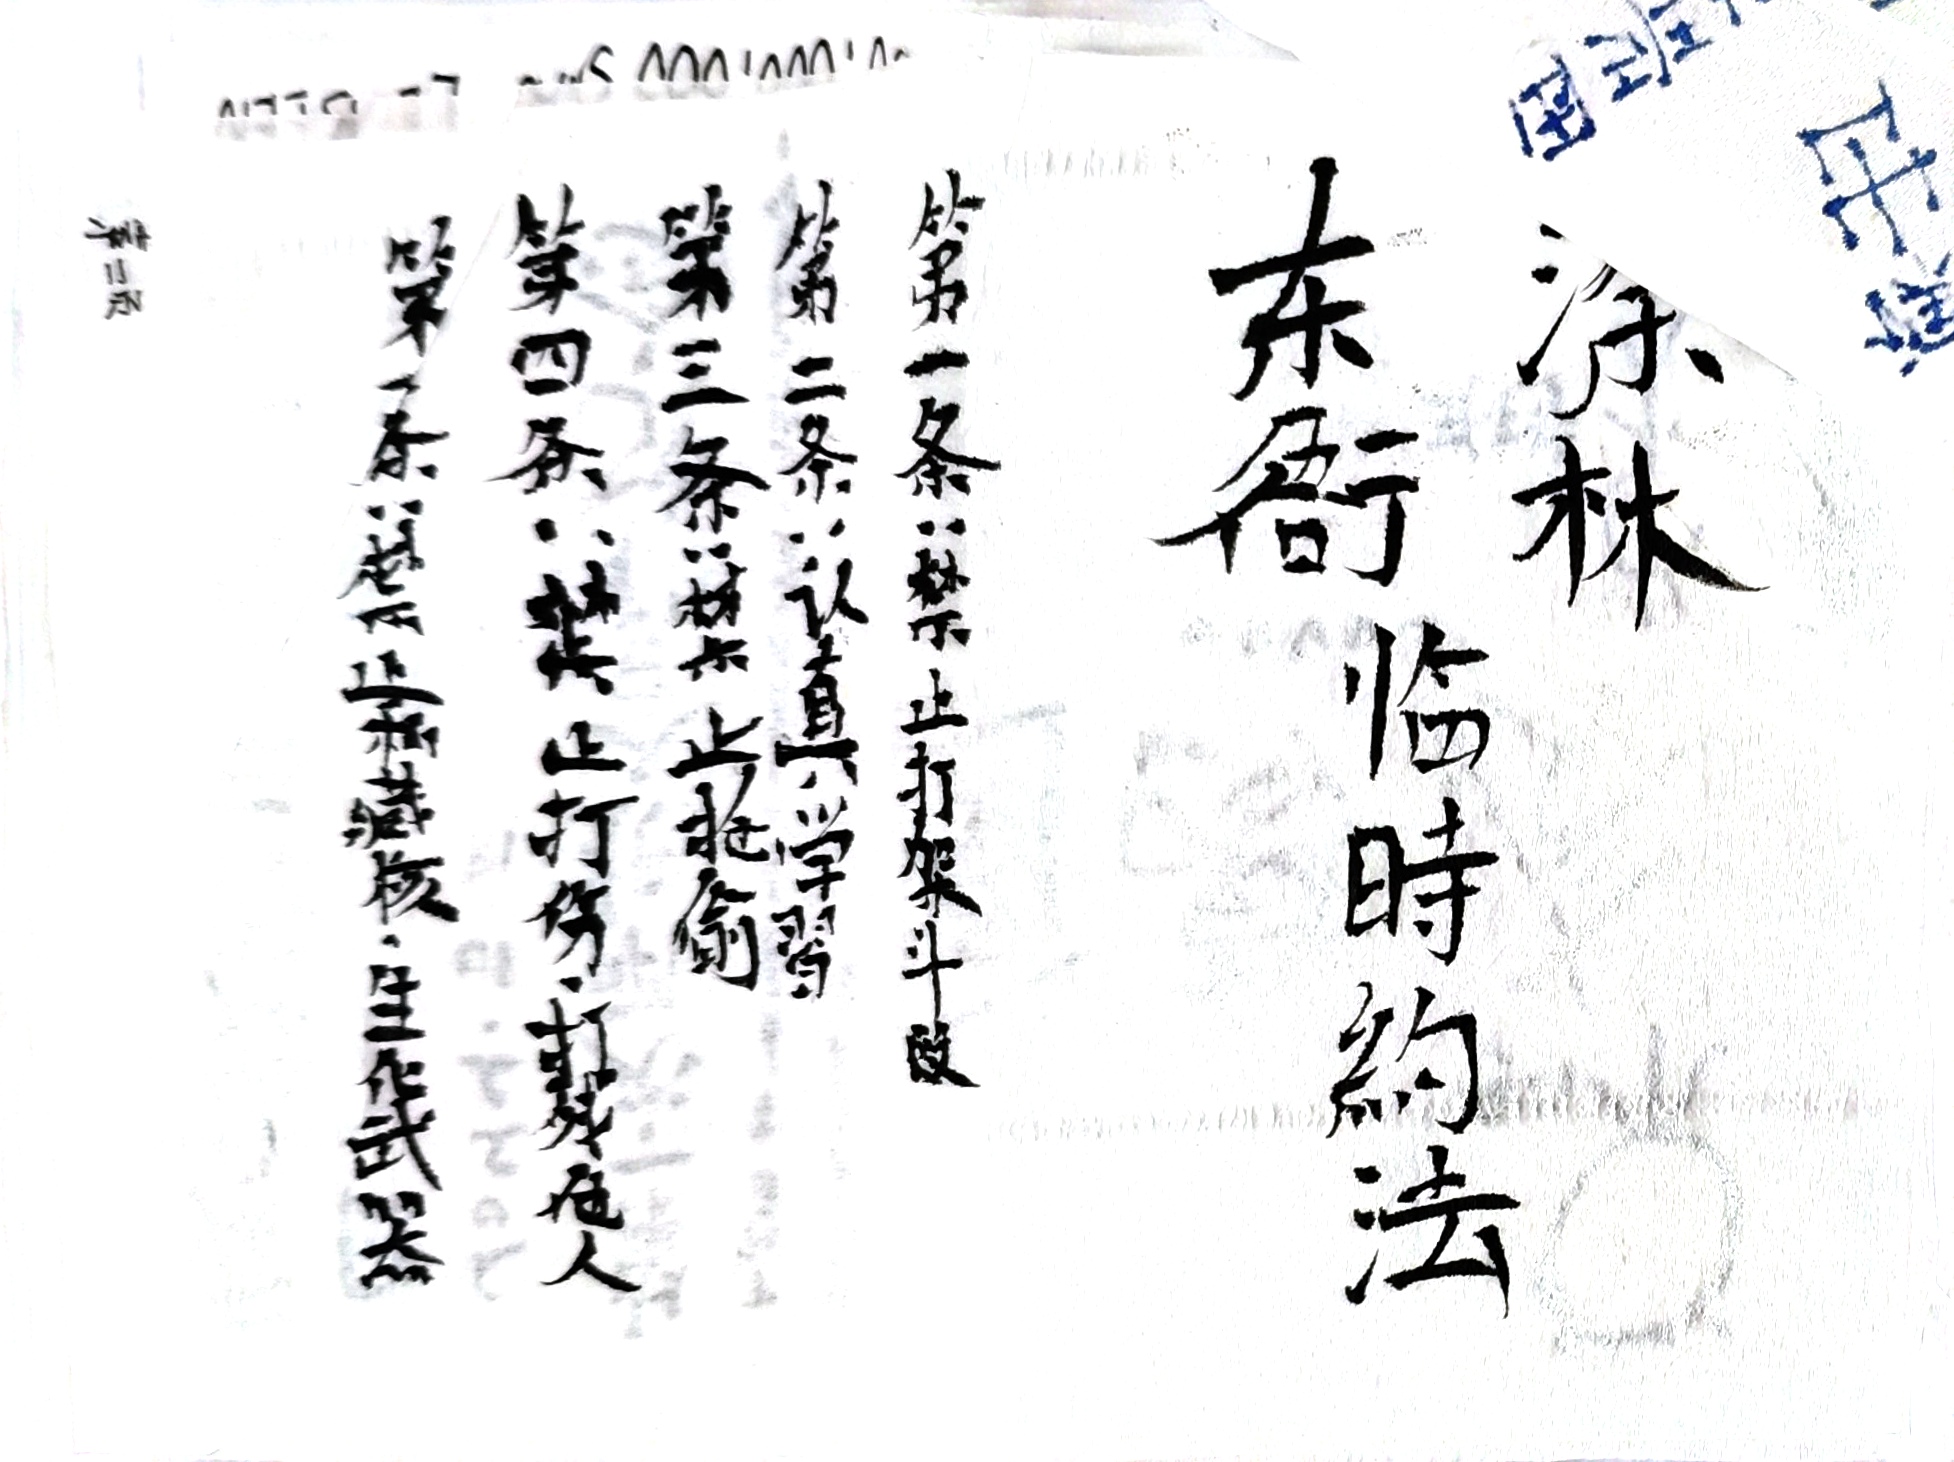 涂林
东衙
临時約法
第一条：禁止打架斗殴
第二条：认真学習
第三条：禁止抢偷
第四条：禁止打伤、打残他人
第一条：禁止私藏核、生化武器